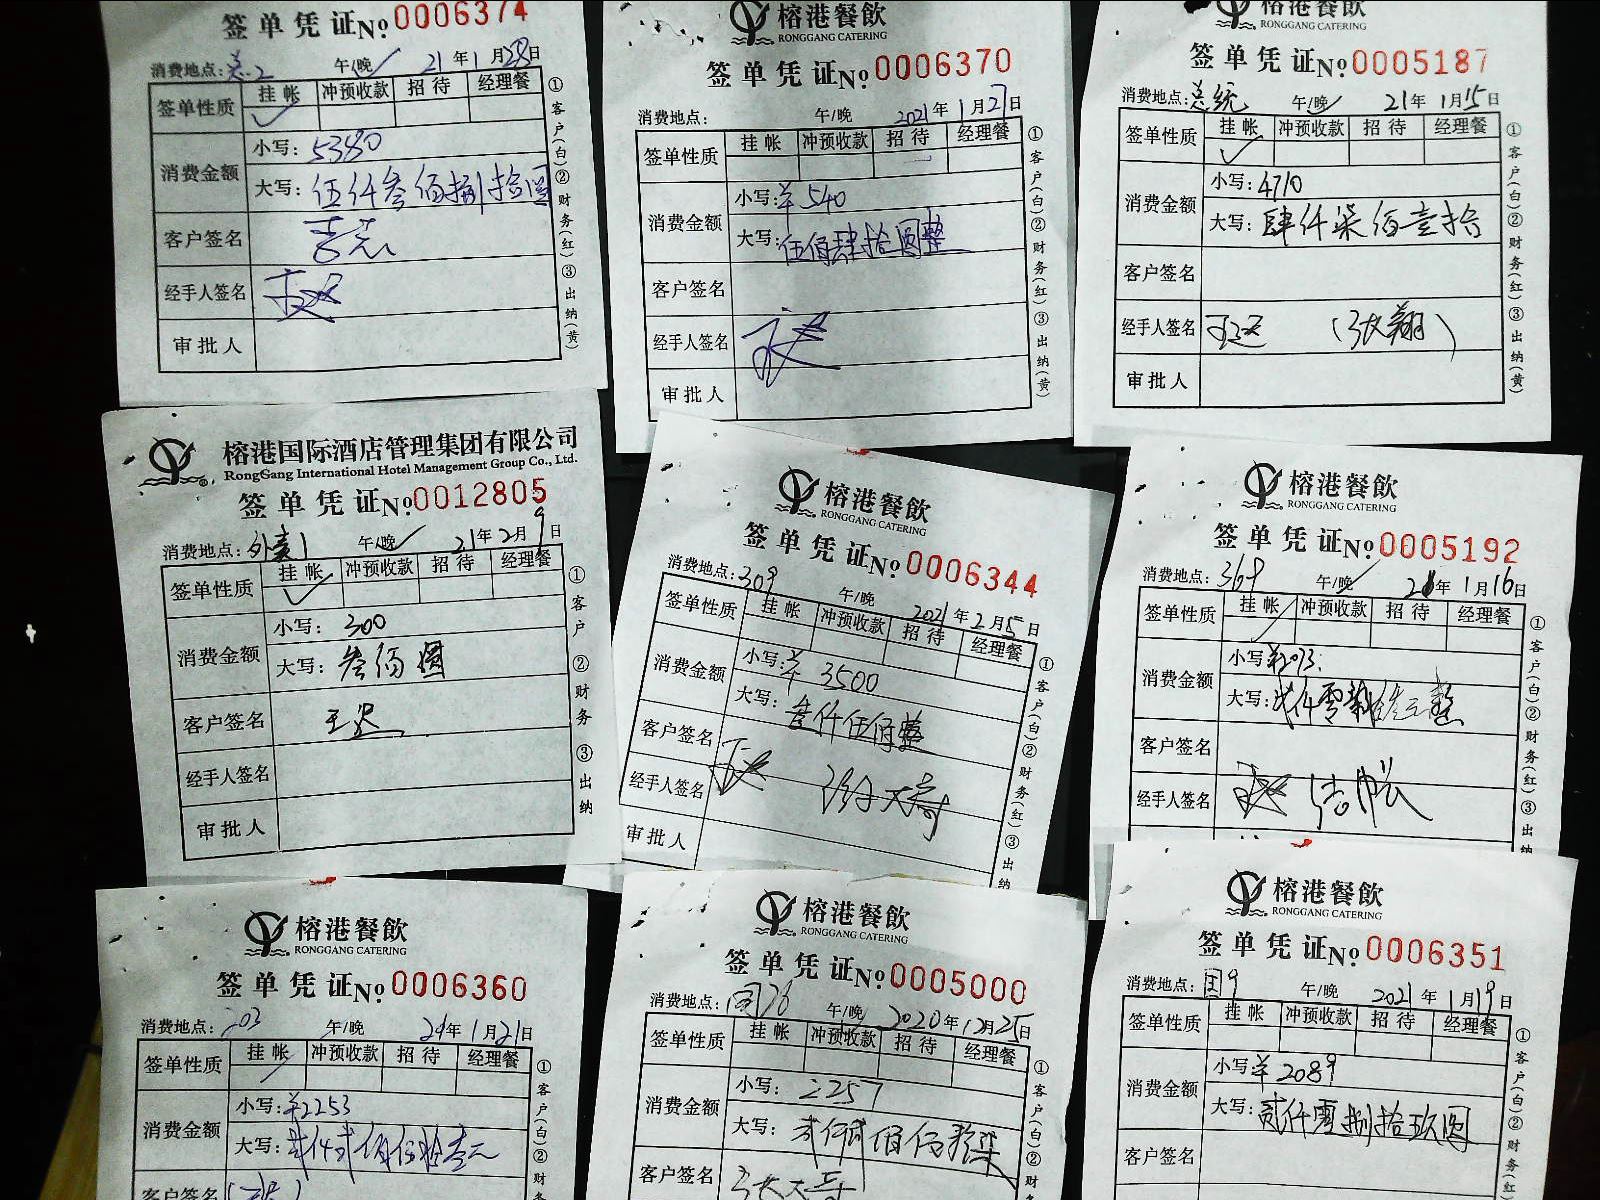 签单凭证 No. 0006374
消费地点：总2 午/晚 21年1月28日
签单性质 挂帐 冲预收款 招待 经理餐
消费金额 小写：5380
大写：伍仟叁佰捌拾圆
客户签名
经手人签名
审批人
①客户(白)②财务(红)③出纳(黄)
榕港餐飲
RONGGANG CATERING
签单凭证 No. 0006370
消费地点： 午/晚 2021年1月27日
签单性质 挂帐 冲预收款 招待 经理餐
消费金额 小写：¥540
大写：伍佰肆拾圆整
客户签名
经手人签名
审批人
①客户(白)②财务(红)③出纳(黄)
榕港餐飲
RONGGANG CATERING
签单凭证 No. 0005187
消费地点：总统 午/晚 21年1月15日
签单性质 挂帐 冲预收款 招待 经理餐
消费金额 小写：4710
大写：肆仟柒佰壹拾
客户签名
经手人签名 (张翔)
审批人
①客户(白)②财务(红)③出纳(黄)
榕港国际酒店管理集团有限公司
RongGang International Hotel Management Group Co., Ltd.
签单凭证 No. 0012805
消费地点：外卖1 午/晚 21年2月9日
签单性质 挂帐 冲预收款 招待 经理餐
消费金额 小写：300
大写：叁佰圆
客户签名
经手人签名
审批人
①客户 ②财务 ③出纳
榕港餐飲
RONGGANG CATERING
签单凭证 No. 0006344
消费地点：309 午/晚 2021年2月5日
签单性质 挂帐 冲预收款 招待 经理餐
消费金额 小写：¥3500
大写：叁仟伍佰整
客户签名
经手人签名
审批人
①客户(白)②财务(红)③出纳
榕港餐飲
RONGGANG CATERING
签单凭证 No. 0005192
消费地点：369 午/晚 21年1月16日
签单性质 挂帐 冲预收款 招待 经理餐
消费金额 小写：¥2073
大写：贰仟零柒拾叁元整
客户签名
经手人签名
①客户(白)②财务(红)③出纳
榕港餐飲
RONGGANG CATERING
签单凭证 No. 0006360
消费地点：203 午/晚 21年1月21日
签单性质 挂帐 冲预收款 招待 经理餐
消费金额 小写：¥2253
大写：贰仟贰佰伍拾叁元
客户签名
①客户(白)②财务
榕港餐飲
RONGGANG CATERING
签单凭证 No. 0005000
消费地点： 午/晚 2020年12月25日
签单性质 挂帐 冲预收款 招待 经理餐
消费金额 小写：2257
大写：贰仟贰佰伍拾柒
客户签名
①客户(白)②财务
榕港餐飲
RONGGANG CATERING
签单凭证 No. 0006351
消费地点：国9 午/晚 2021年1月19日
签单性质 挂帐 冲预收款 招待 经理餐
消费金额 小写：¥2089
大写：贰仟零捌拾玖圆
客户签名
①客户(白)②财务